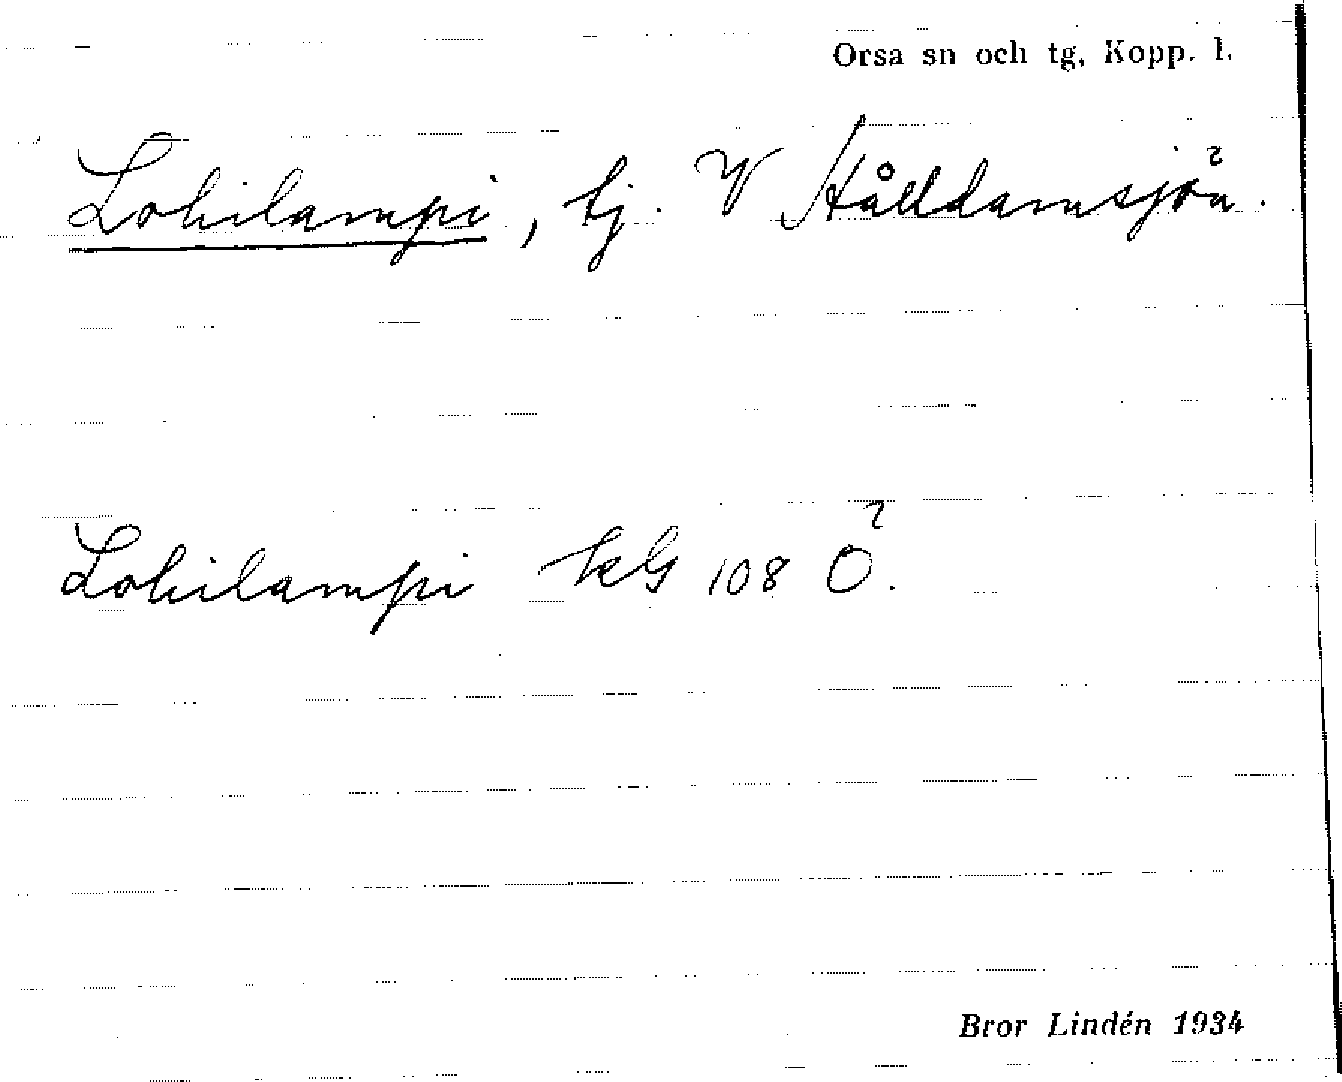 Orsa sn och tg, Kopp. l.
Lohilampi, tj. V Hålldamsjön.
Lohilampi kG 108 Ö.
Bror Lindén 1934